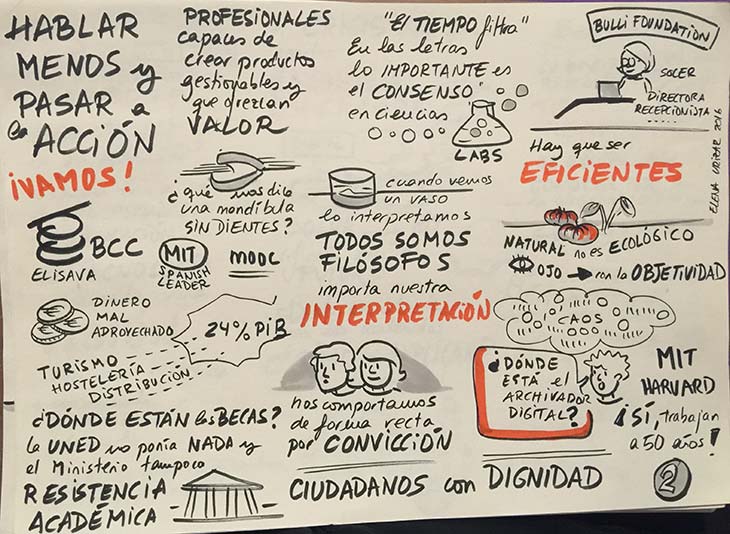 HABLAR
MENOS y
PASAR a
la ACCIÓN
¡VAMOS!
PROFESIONALES
capaces de
crear productos
gestionables y
que ofrezcan
VALOR
"El TIEMPO filtra"
En las letras
lo IMPORTANTE es
el CONSENSO"
en ciencias
LABS
BULLI FOUNDATION
SOLER
DIRECTORA
RECEPCIONISTA
ELENA URIZAR 2016
Hay que ser
EFICIENTES
¿qué nos dice
una mandíbula
SIN DIENTES?
cuando vemos
un VASO
lo interpretamos
TODOS SOMOS
FILÓSOFOS
importa nuestra
INTERPRETACIÓN
NATURAL no es ECOLÓGICO
OJO con la OBJETIVIDAD
BCC
ELISAVA
MIT
SPANISH
LEADER
MOOC
DINERO
MAL
APROVECHADO
24% PIB
TURISMO
HOSTELERÍA
DISTRIBUCIÓN
CAOS
¿DÓNDE
ESTÁ el
ARCHIVADOR
DIGITAL?
MIT
HARVARD
¡SÍ, trabajan
a 50 años!
nos comportamos
de forma recta
por CONVICCIÓN
¿DÓNDE ESTÁN las BECAS?
la UNED no ponía NADA y
el Ministerio tampoco
RESISTENCIA
ACADÉMICA
CIUDADANOS con DIGNIDAD
2